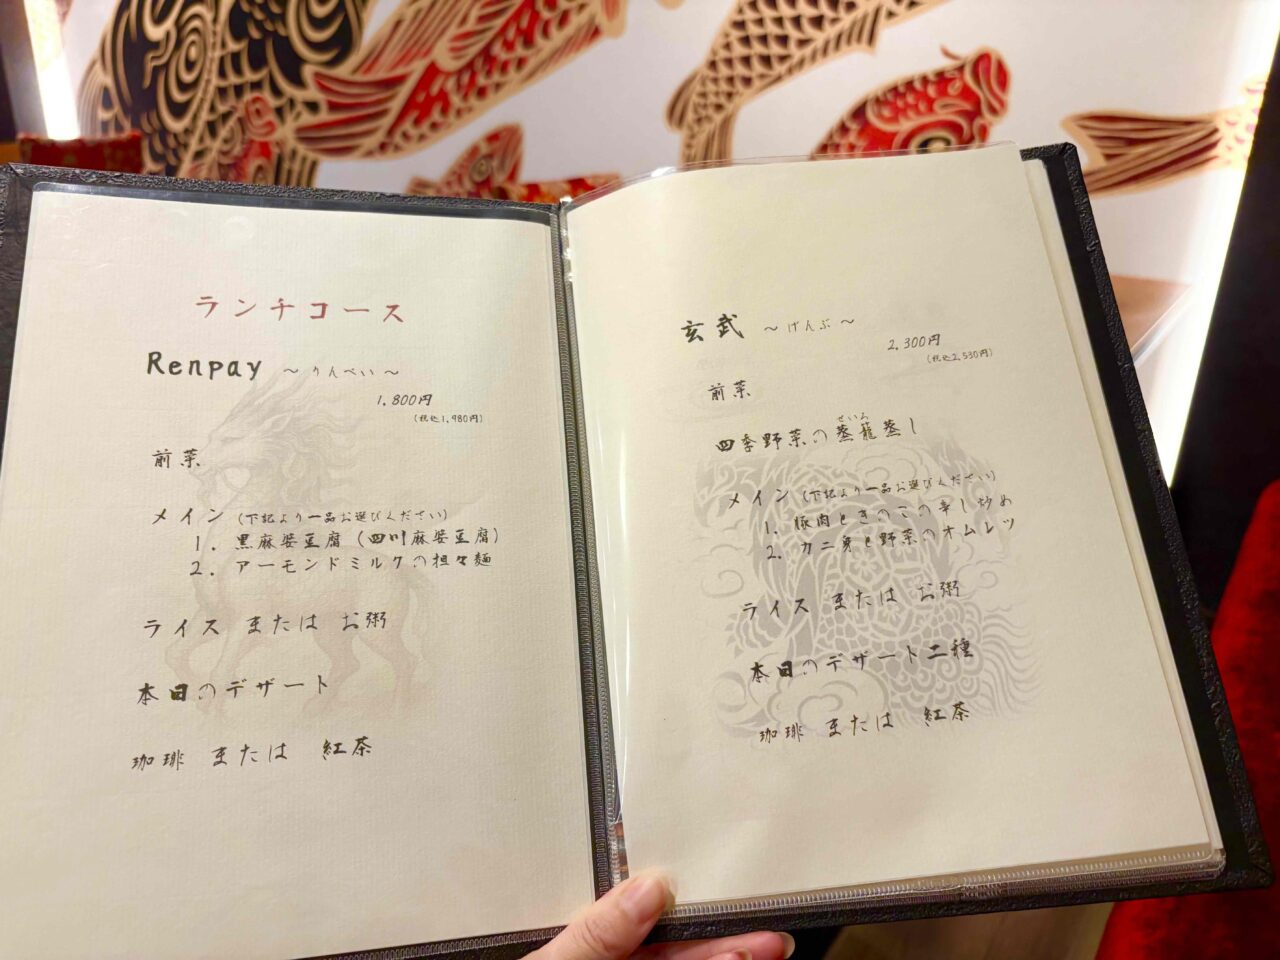 ランチコース
Renpay ～りんぺい～
1,800円
(税込1,980円)
前菜
メイン (下記より一品お選びください)
1. 黒麻婆豆腐 (四川麻婆豆腐)
2. アーモンドミルクの担々麺
ライス または お粥
本日のデザート
珈琲 または 紅茶
玄武 ～げんぶ～
2,300円
(税込2,530円)
前菜
せいろ
四季野菜の蒸籠蒸し
メイン (下記より一品お選びください)
1. 豚肉ときのこの辛し炒め
2. カニ身と野菜のオムレツ
ライス または お粥
本日のデザート二種
珈琲 または 紅茶